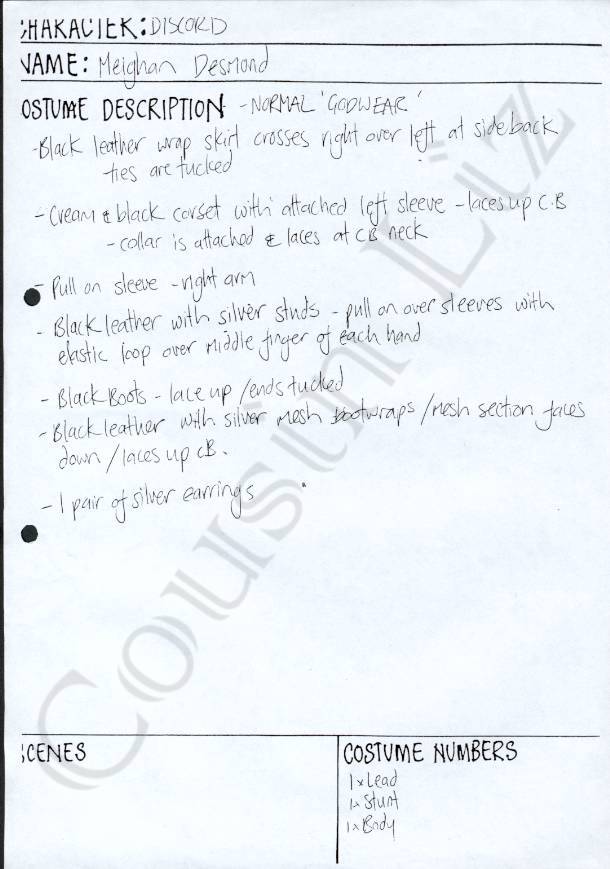 CHARACTER: DISCORD
NAME: Meighan Desmond
COSTUME DESCRIPTION - NORMAL 'GODWEAR'
- Black leather wrap skirt crosses right over left at sideback
ties are tucked
- Cream & black corset with attached left sleeve - laces up C.B
- collar is attached & laces at CB neck
- Pull on sleeve - right arm
- Black leather with silver studs - pull on over sleeves with
elastic loop over middle finger of each hand
- Black Boots - lace up / ends tucked
- Black leather with silver mesh bootwraps / mesh section faces
down / laces up CB.
- 1 pair of silver earrings
SCENES
COSTUME NUMBERS
1 x Lead
1 x Stunt
1 x Body
Cousin Liz